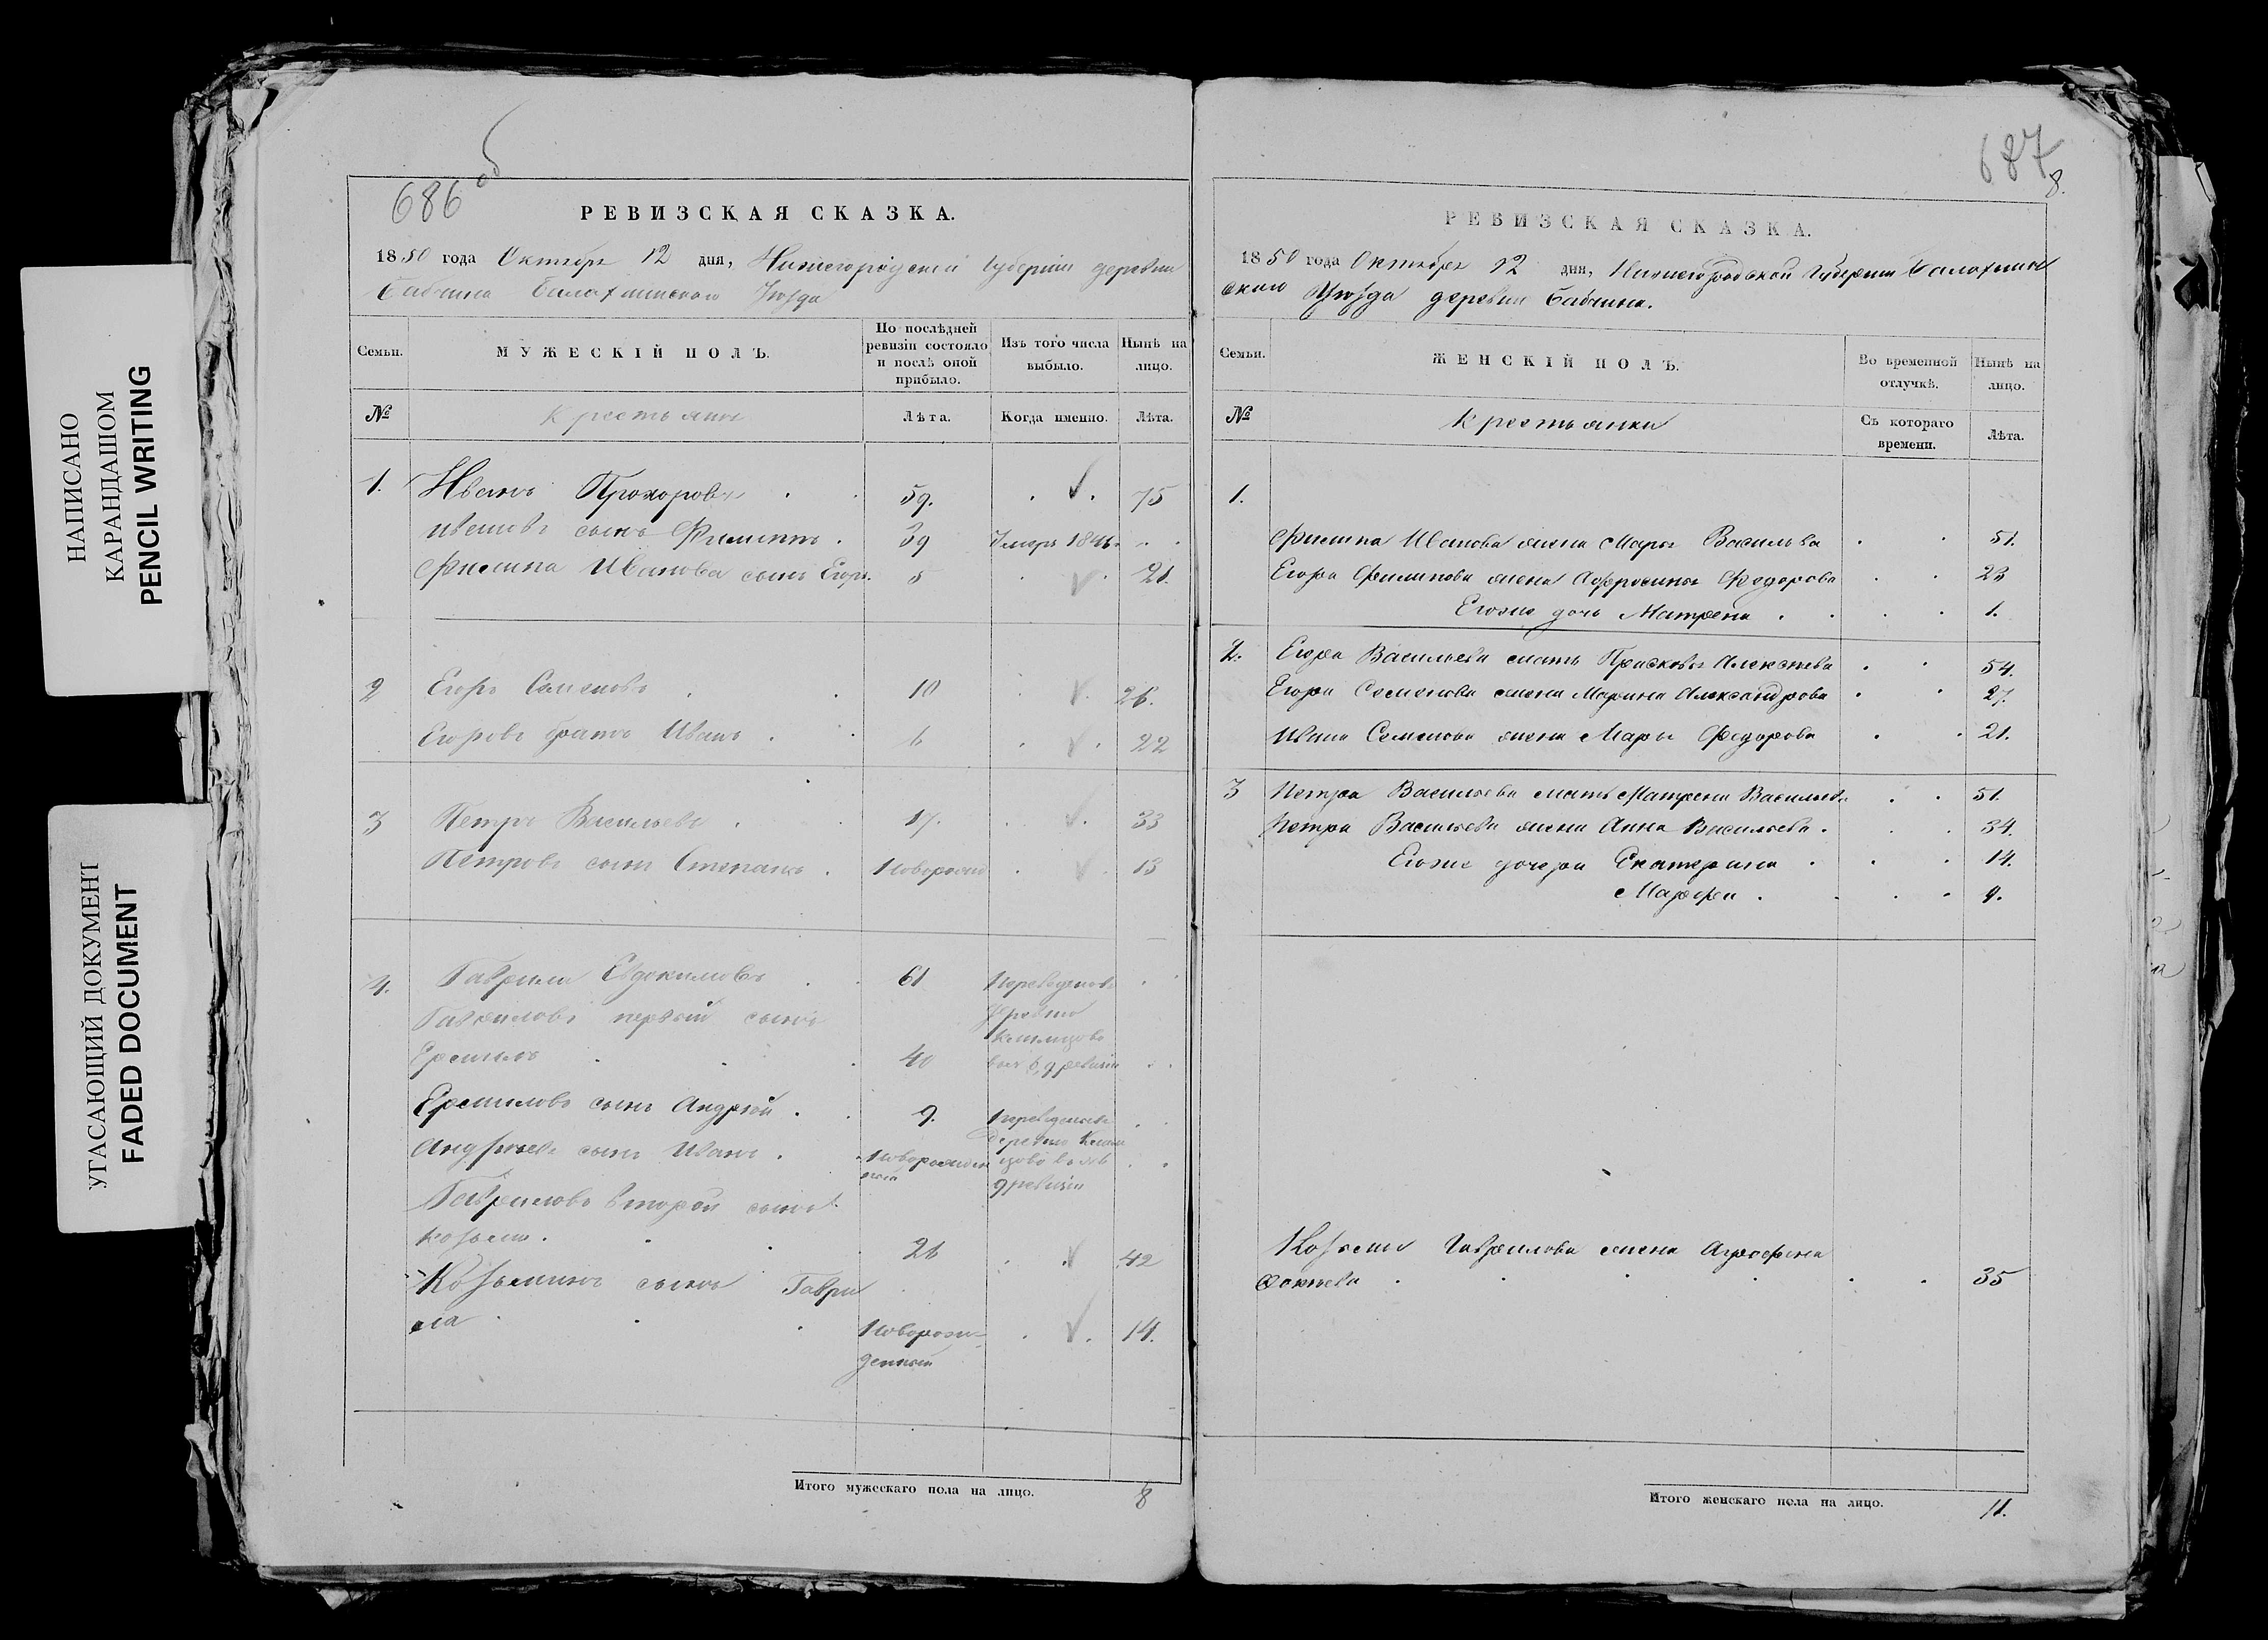 НАПИСАНО
КАРАНДАШОМ
PENCIL WRITING
УГАСАЮЩИЙ ДОКУМЕНТ
FADED DOCUMENT
686 об
РЕВИЗСКАЯ СКАЗКА.
1850 года Октября 12 дня, Нижегородской губерніи деревни
Балахнинскаго Уѣзда
Семьи. МУЖЕСКІЙ ПОЛЪ. По послѣдней ревизіи состояло и послѣ оной прибыло. Изъ того числа выбыло. Нынѣ на лицо.
№ Крестьяне Лѣта. Когда именно. Лѣта.
1. Иванъ Прохоровъ 59. 75
Ивановъ сынъ Филиппъ 39 Умеръ
Филипа Иванова сынъ Егоръ. 5 21.
2 Егоръ Семеновъ 10 26.
Егоровъ братъ Иванъ 6 22
3 Петръ Васильевъ 17. 33
Петровъ сынъ Степанъ 13
4. Гаврила Евдокимовъ 61
Гавриловъ первый сынъ
40
сынъ Андрей 9.
Андреевъ сынъ Иванъ
Гавриловъ второй сынъ
Козьма 26 42
Козьминъ сынъ Гаври
ла Новорож-
денный 14.
Итого мужескаго пола на лицо. 8
687
8.
РЕВИЗСКАЯ СКАЗКА.
1850 года Октября 12 дня, Нижегородской губерніи Балахнин
скаго Уѣзда деревни
Семьи. ЖЕНСКІЙ ПОЛЪ. Во временной отлучкѣ. Нынѣ на лицо.
№ Крестьянки Съ котораго времени. Лѣта.
1.
Филипа Иванова жена Марья Васильева 51.
Егора Филипова жена Афросинья Федорова 23
Егоже дочь Матрена 1.
2. Егора Васильева мать Прасковья Алексѣева 54.
Егора Семенова жена Марина Александрова 27.
Ивана Семенова жена Марья Федорова 21.
3 Петра Васильева мать Матрена Васильева 51.
Петра Васильева жена Анна Васильева 34.
Егоже дочери Екатерина 14.
Марфа 9.
Козьмы Гаврилова жена Аграфена
Фокѣева 35
Итого женскаго пола на лицо. 11.